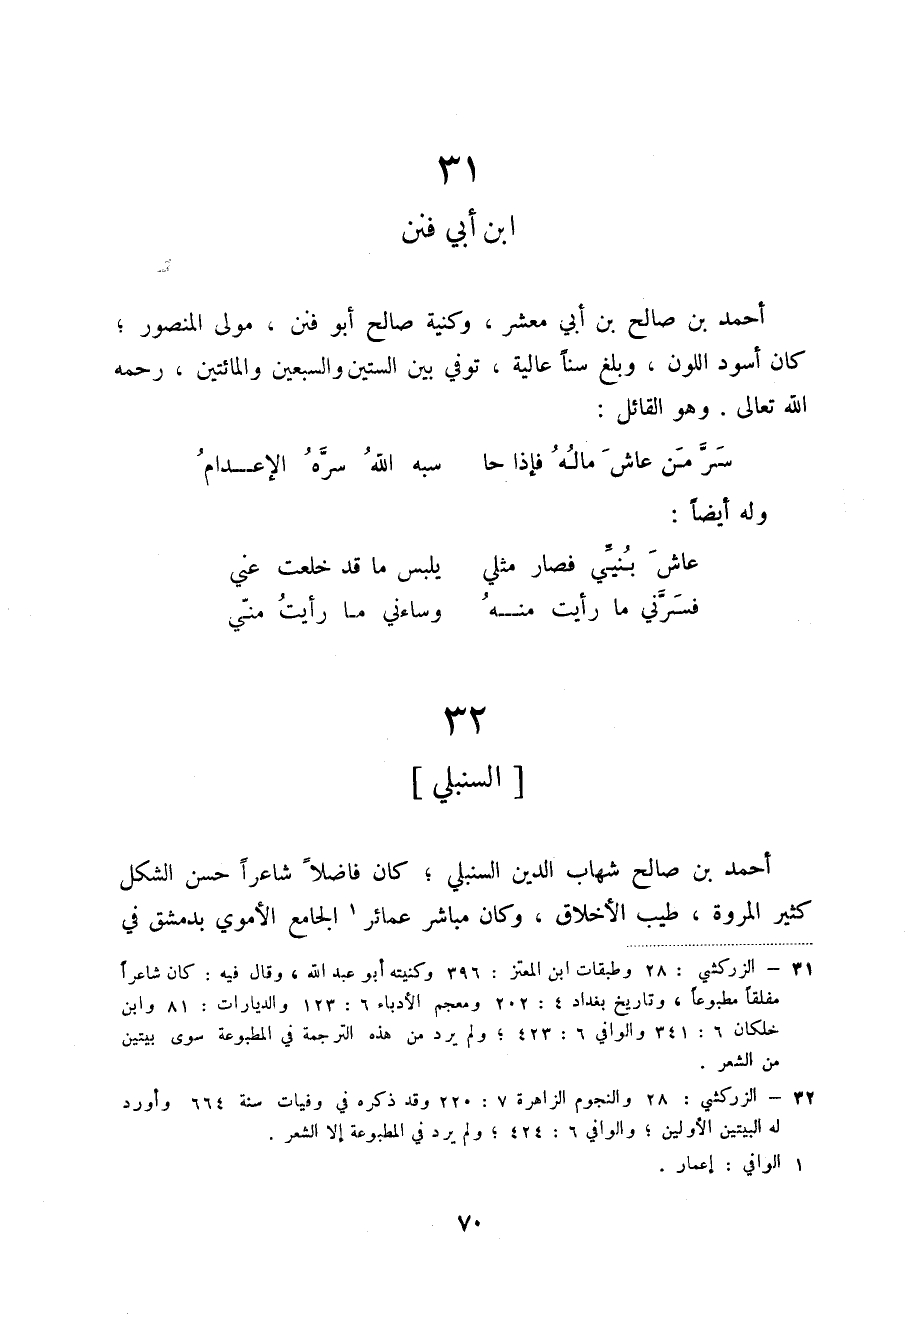 ٣١
ابن أبي فنن
أحمد بن صالح بن أبي معشر ، وكنية صالح أبو فنن ، مولى المنصور ؛
كان أسود اللون ، وبلغ سناً عالية ، توفي بين الستين والسبعين والمائتين ، رحمه
الله تعالى . وهو القائل :
سَرَّ مَن عاشَ مالُهُ فإذا حا سبه اللهُ سرَّهُ الإعــدامُ
وله أيضاً :
عاشَ بُنيِّي فصار مثلي يلبس ما قد خلعت عني
فسَرَّني ما رأيت منــهُ وساءني مـا رأيتُ منّي
٣٢
[ السنبلي ]
أحمد بن صالح شهاب الدين السنبلي ؛ كان فاضلاً شاعراً حسن الشكل
كثير المروة ، طيب الأخلاق ، وكان مباشر عمائر ١ الجامع الأموي بدمشق في
٣١ – الزركشي : ٢٨ وطبقات ابن المعتز : ٣٩٦ وكنيته أبو عبد الله ، وقال فيه : كان شاعراً
مفلقاً مطبوعاً ، وتاريخ بغداد ٤ : ٢٠٢ ومعجم الأدباء ٦ : ١٢٣ والديارات : ٨١ وابن
خلكان ٦ : ٣٤١ والوافي ٦ : ٤٢٣ ؛ ولم يرد من هذه الترجمة في المطبوعة سوى بيتين
من الشعر .
٣٢ – الزركشي : ٢٨ والنجوم الزاهرة ٧ : ٢٢٠ وقد ذكره في وفيات سنة ٦٦٤ وأورد
له البيتين الأولين ؛ والوافي ٦ : ٤٢٤ ؛ ولم يرد في المطبوعة إلا الشعر .
١ الوافي : إعمار .
٧٠